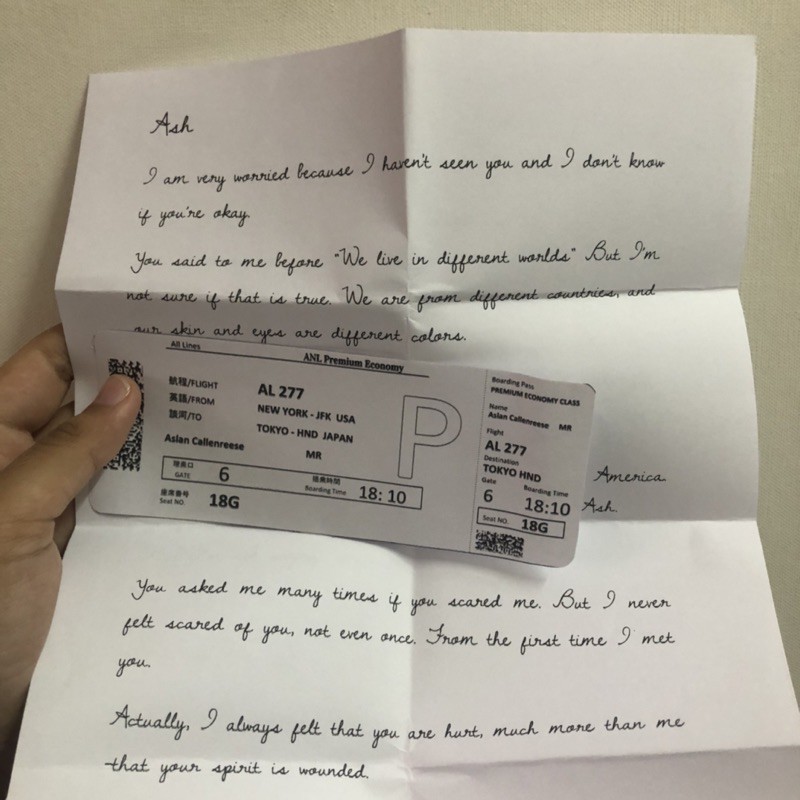 Ash
I am very worried because I haven't seen you and I don't know
if you're okay.
You said to me before "We live in different worlds" But I'm
not sure if that is true. We are from different countries, and
our skin and eyes are different colors.
All Lines
ANL Premium Economy
/FLIGHT AL 277
英語/FROM NEW YORK - JFK USA
/TO TOKYO - HND JAPAN
Aslan Callenreese MR
GATE 6
Boarding Time 18: 10
座席番号
Seat NO. 18G
P
Boarding Pass
PREMIUM ECONOMY CLASS
Name
Aslan Callenreese MR
Flight
AL 277
Destination
TOKYO HND
Gate Boarding Time
6 18:10
Seat NO. 18G
America.
Ash.
You asked me many times if you scared me. But I never
felt scared of you, not even once. From the first time I met
you.
Actually, I always felt that you are hurt, much more than me
that your spirit is wounded.